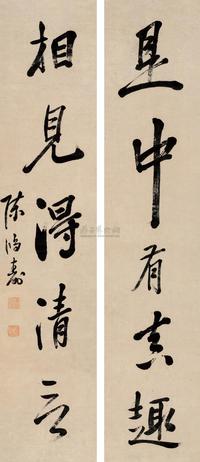 是中有真趣
相見得清言
陳鴻壽